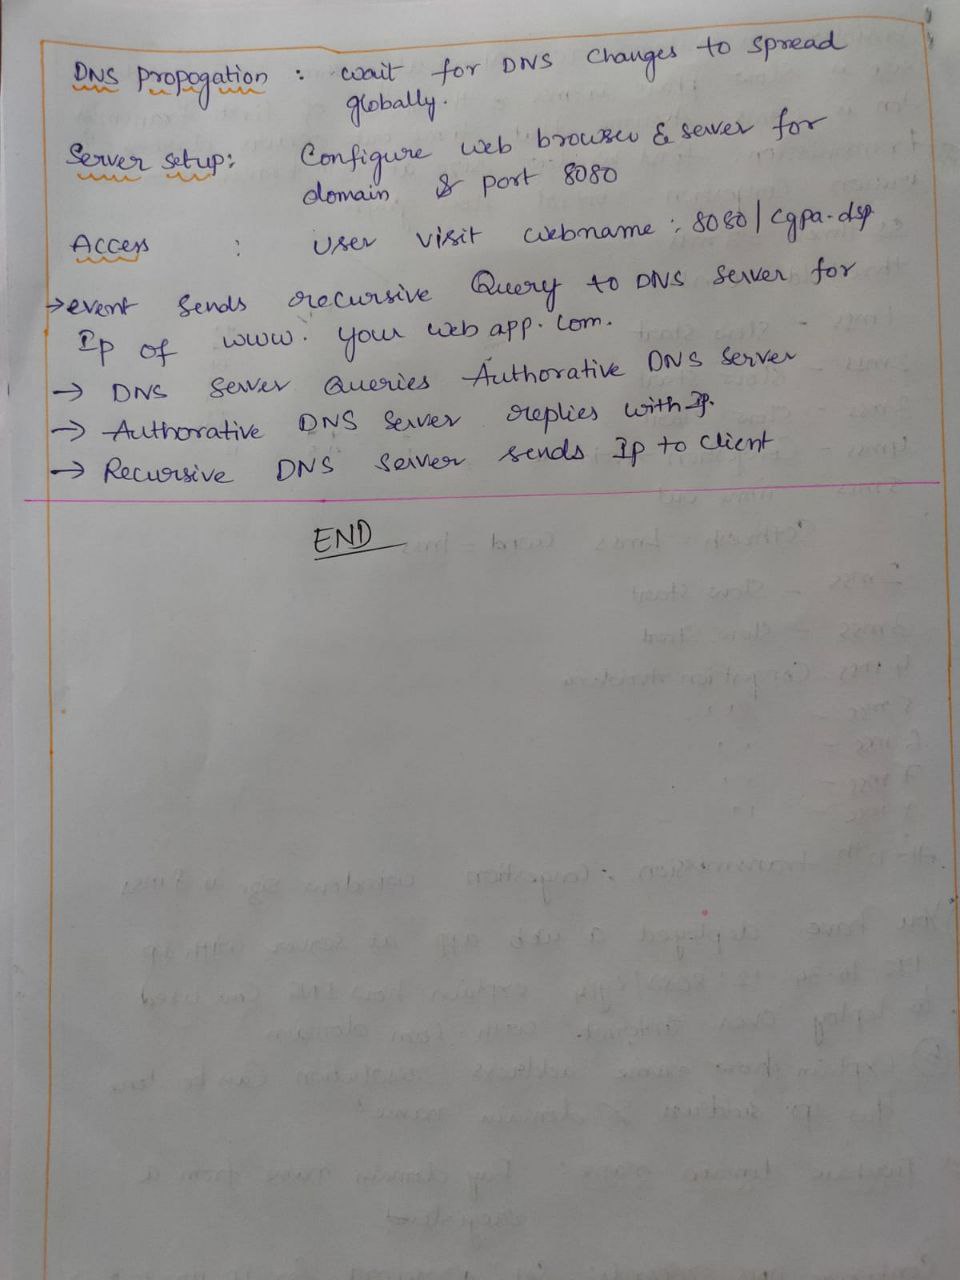 DNS Propogation : wait for DNS changes to spread
globally.
Server setup: Configure web browser & server for
domain & port 8080
Access : User visit webname : 8080/cgpa-dsp
→ event sends recursive Query to DNS server for
Ip of www. your web app. com.
→ DNS server Queries Authorative DNS server
→ Authorative DNS server replies with Ip.
→ Recursive DNS server sends Ip to client
END